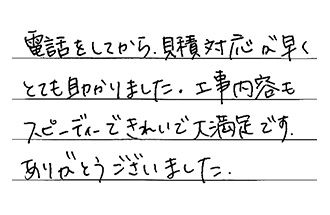 電話をしてから、見積対応が早く
とても助かりました。工事内容も
スピーディーできれいで大満足です.
ありがとうございました.